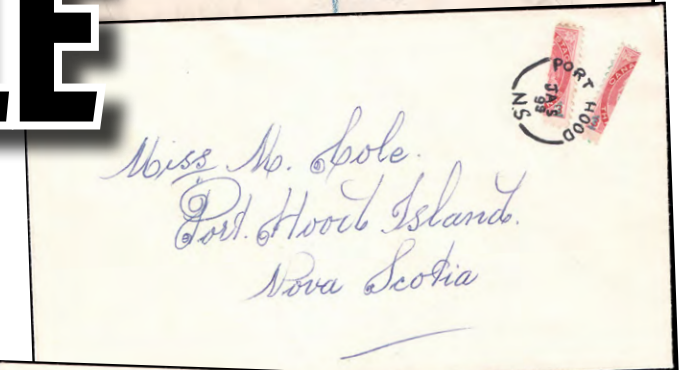 LE
PORT HOOD
JA 5
99
N.S.
Miss M. Hole.
Port. Hood Island.
Nova Scotia